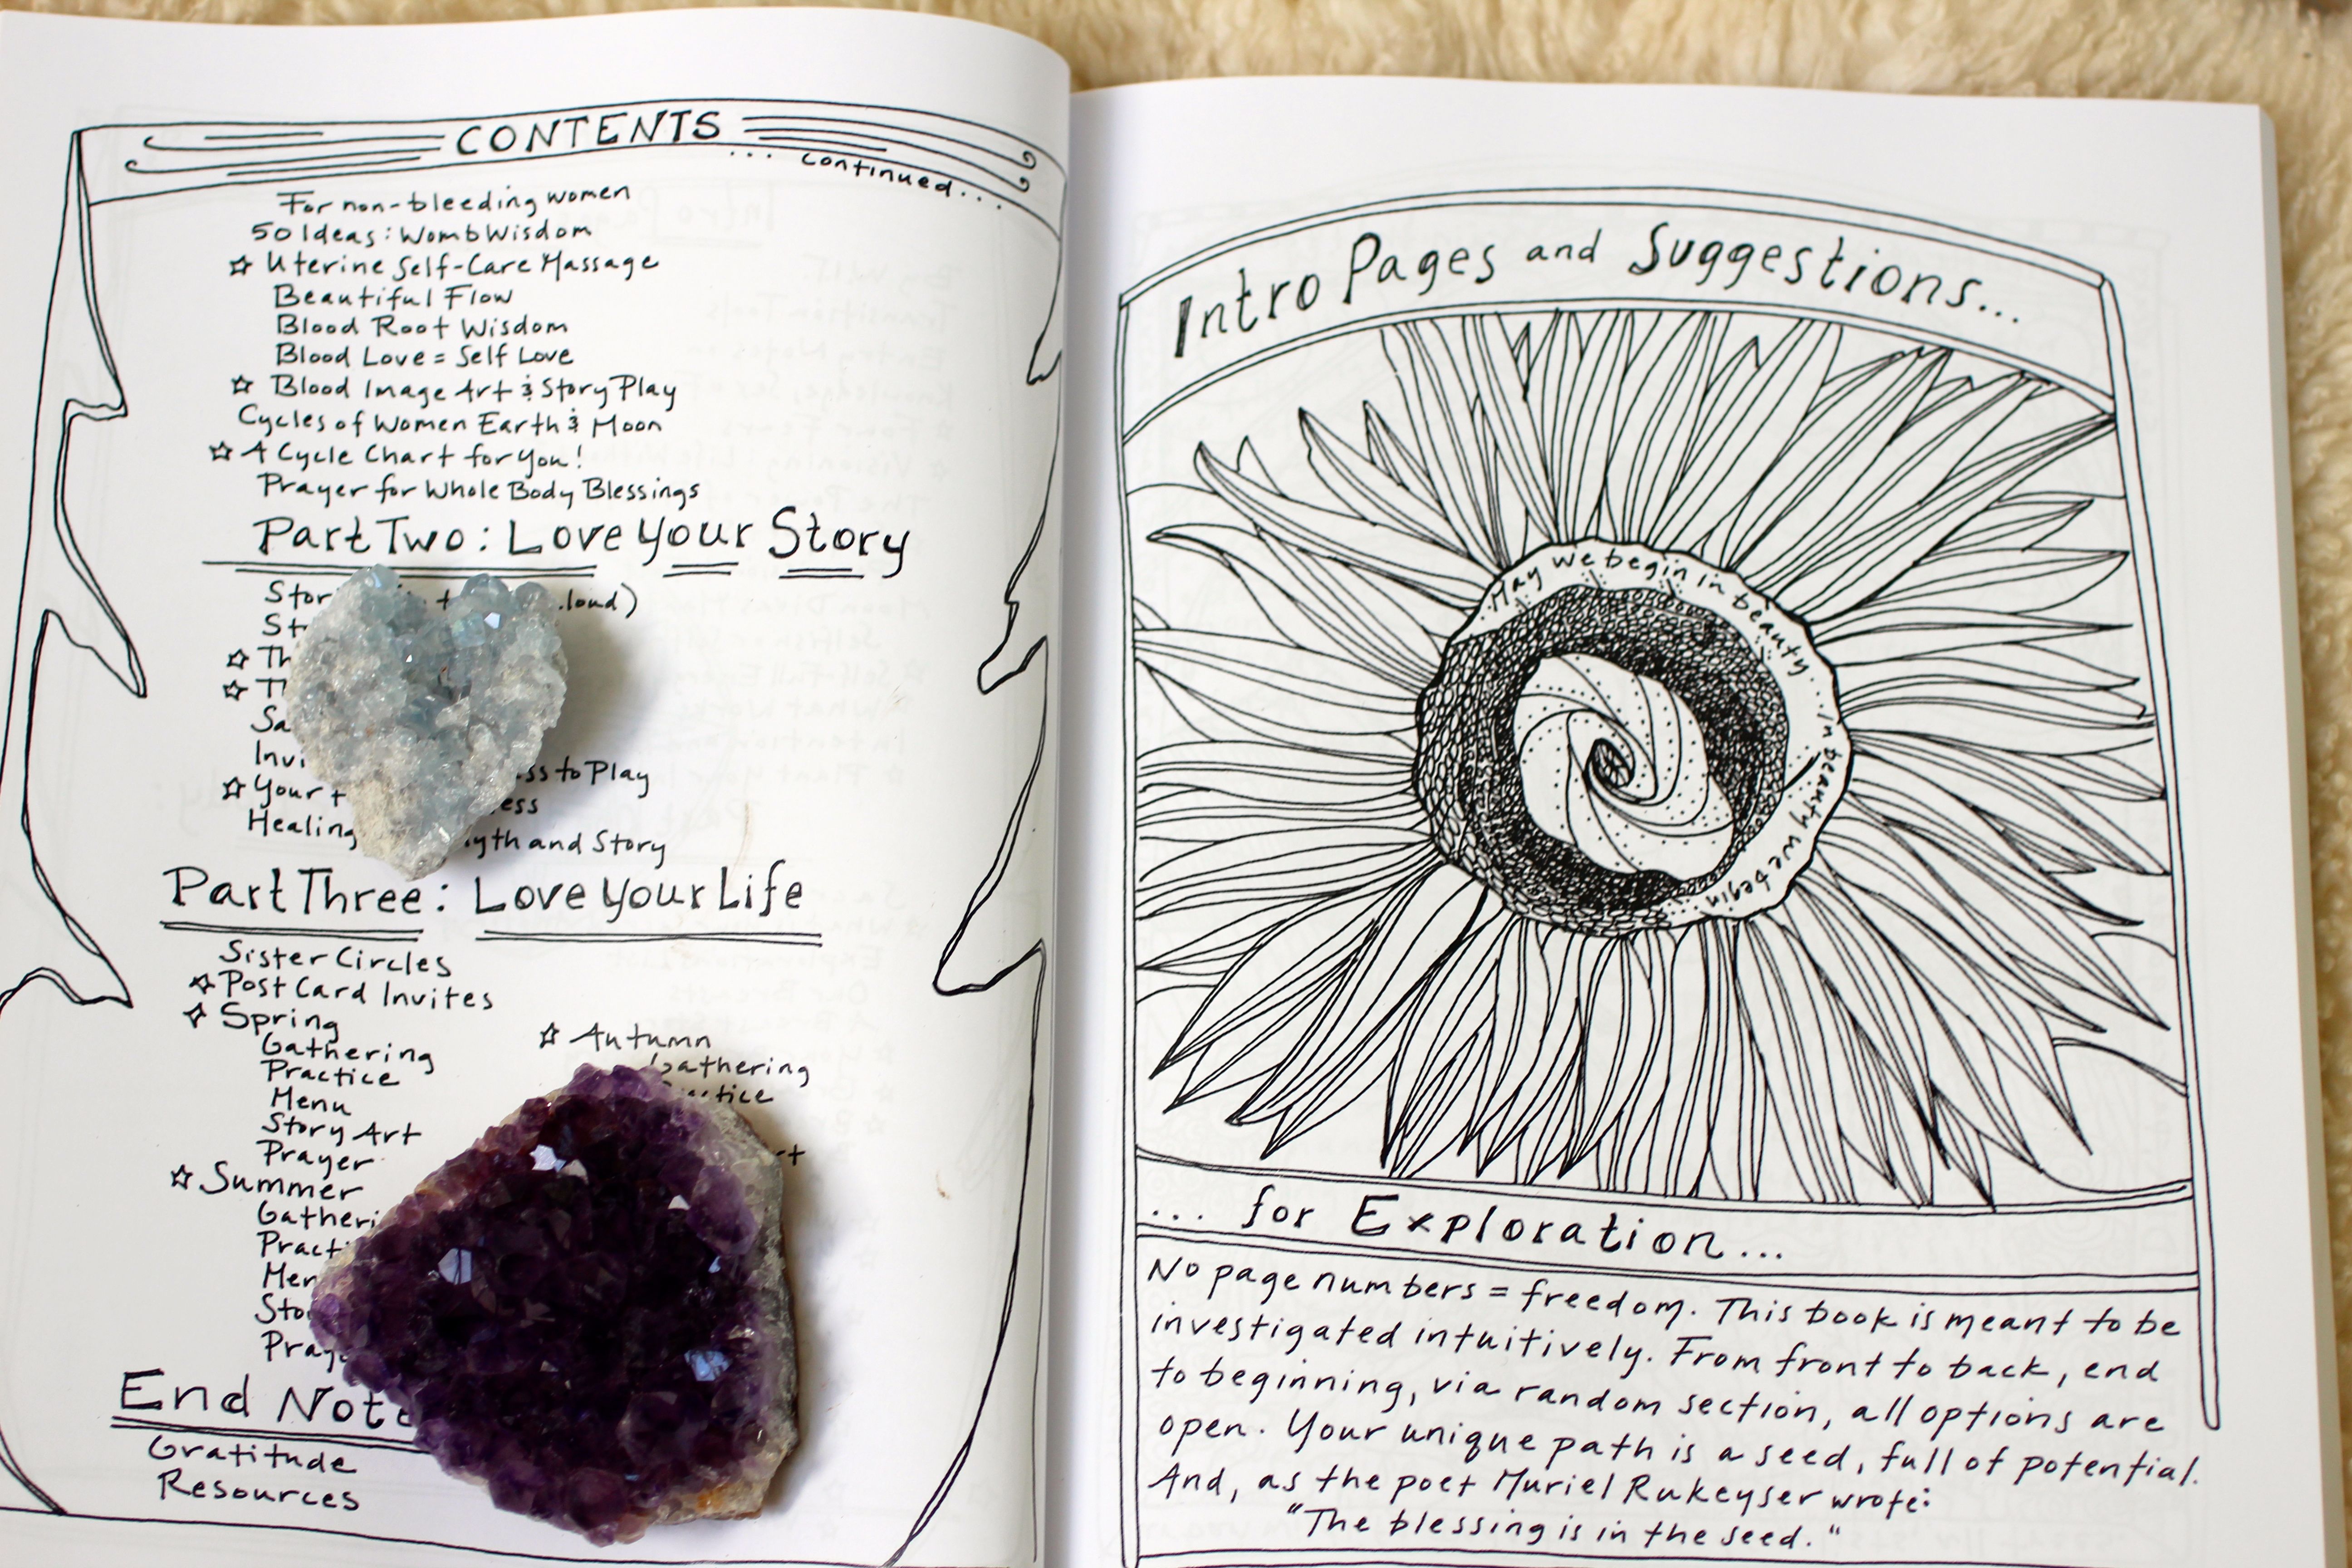 CONTENTS
... continued...
For non-bleeding women
50 Ideas: Womb Wisdom
☆ Uterine Self-Care Massage
Beautiful Flow
Blood Root Wisdom
Blood Love = Self Love
☆ Blood Image Art & Story Play
Cycles of Women Earth & Moon
☆ A Cycle Chart for You!
Prayer for Whole Body Blessings
Part Two: Love Your Story
loud)
☆
☆
to Play
☆ Your
Healing and Story
Part Three: Love Your Life
Sister Circles
☆ Post Card Invites
☆ Spring
Gathering
Practice
Menu
Story Art
Prayer
☆ Summer
☆ Autumn
Gathering
End
Gratitude
Resources
Intro Pages and Suggestions...
May we begin in beauty... In beauty we begin
... for Exploration...
No page numbers = freedom. This book is meant to be
investigated intuitively. From front to back, end
to beginning, via random section, all options are
open. Your unique path is a seed, full of potential.
And, as the poet Muriel Rukeyser wrote:
"The blessing is in the seed."